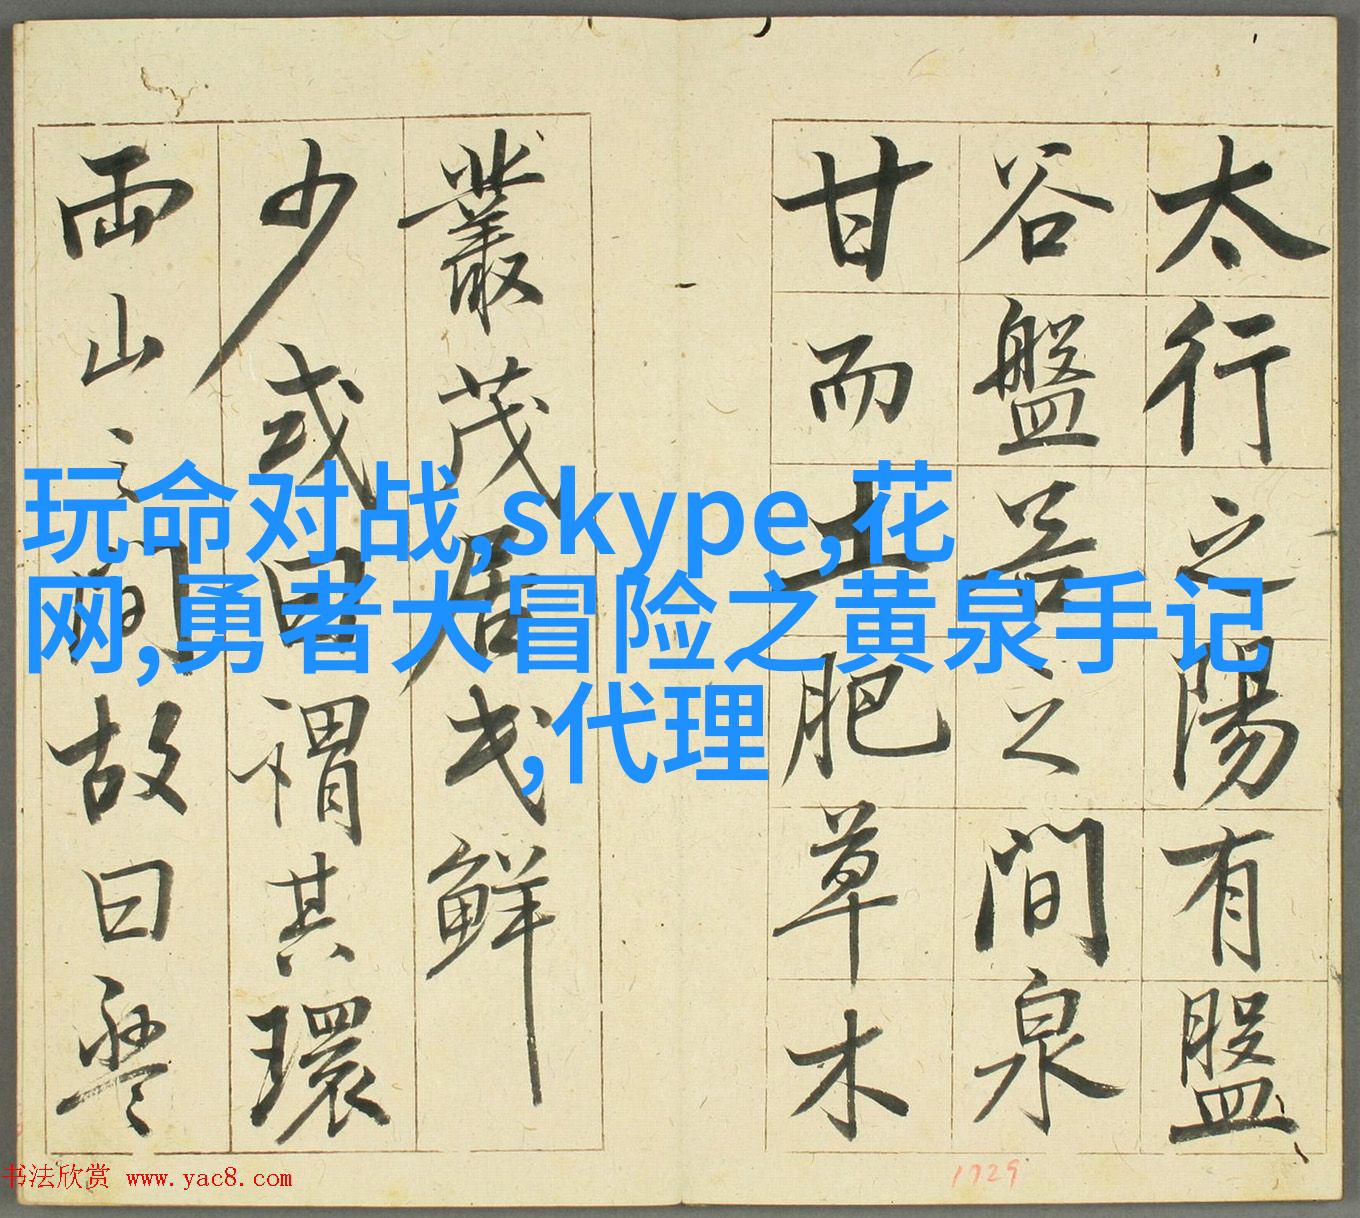 太行之陽有盤
谷盤谷之間泉
甘而土肥草木
叢茂居民鮮
少或曰謂其環
兩山之間故曰盤
玩命对战,skype,花
网,勇者大冒险之黄泉手记
,代理
书法欣赏 www.yac8.com
1729